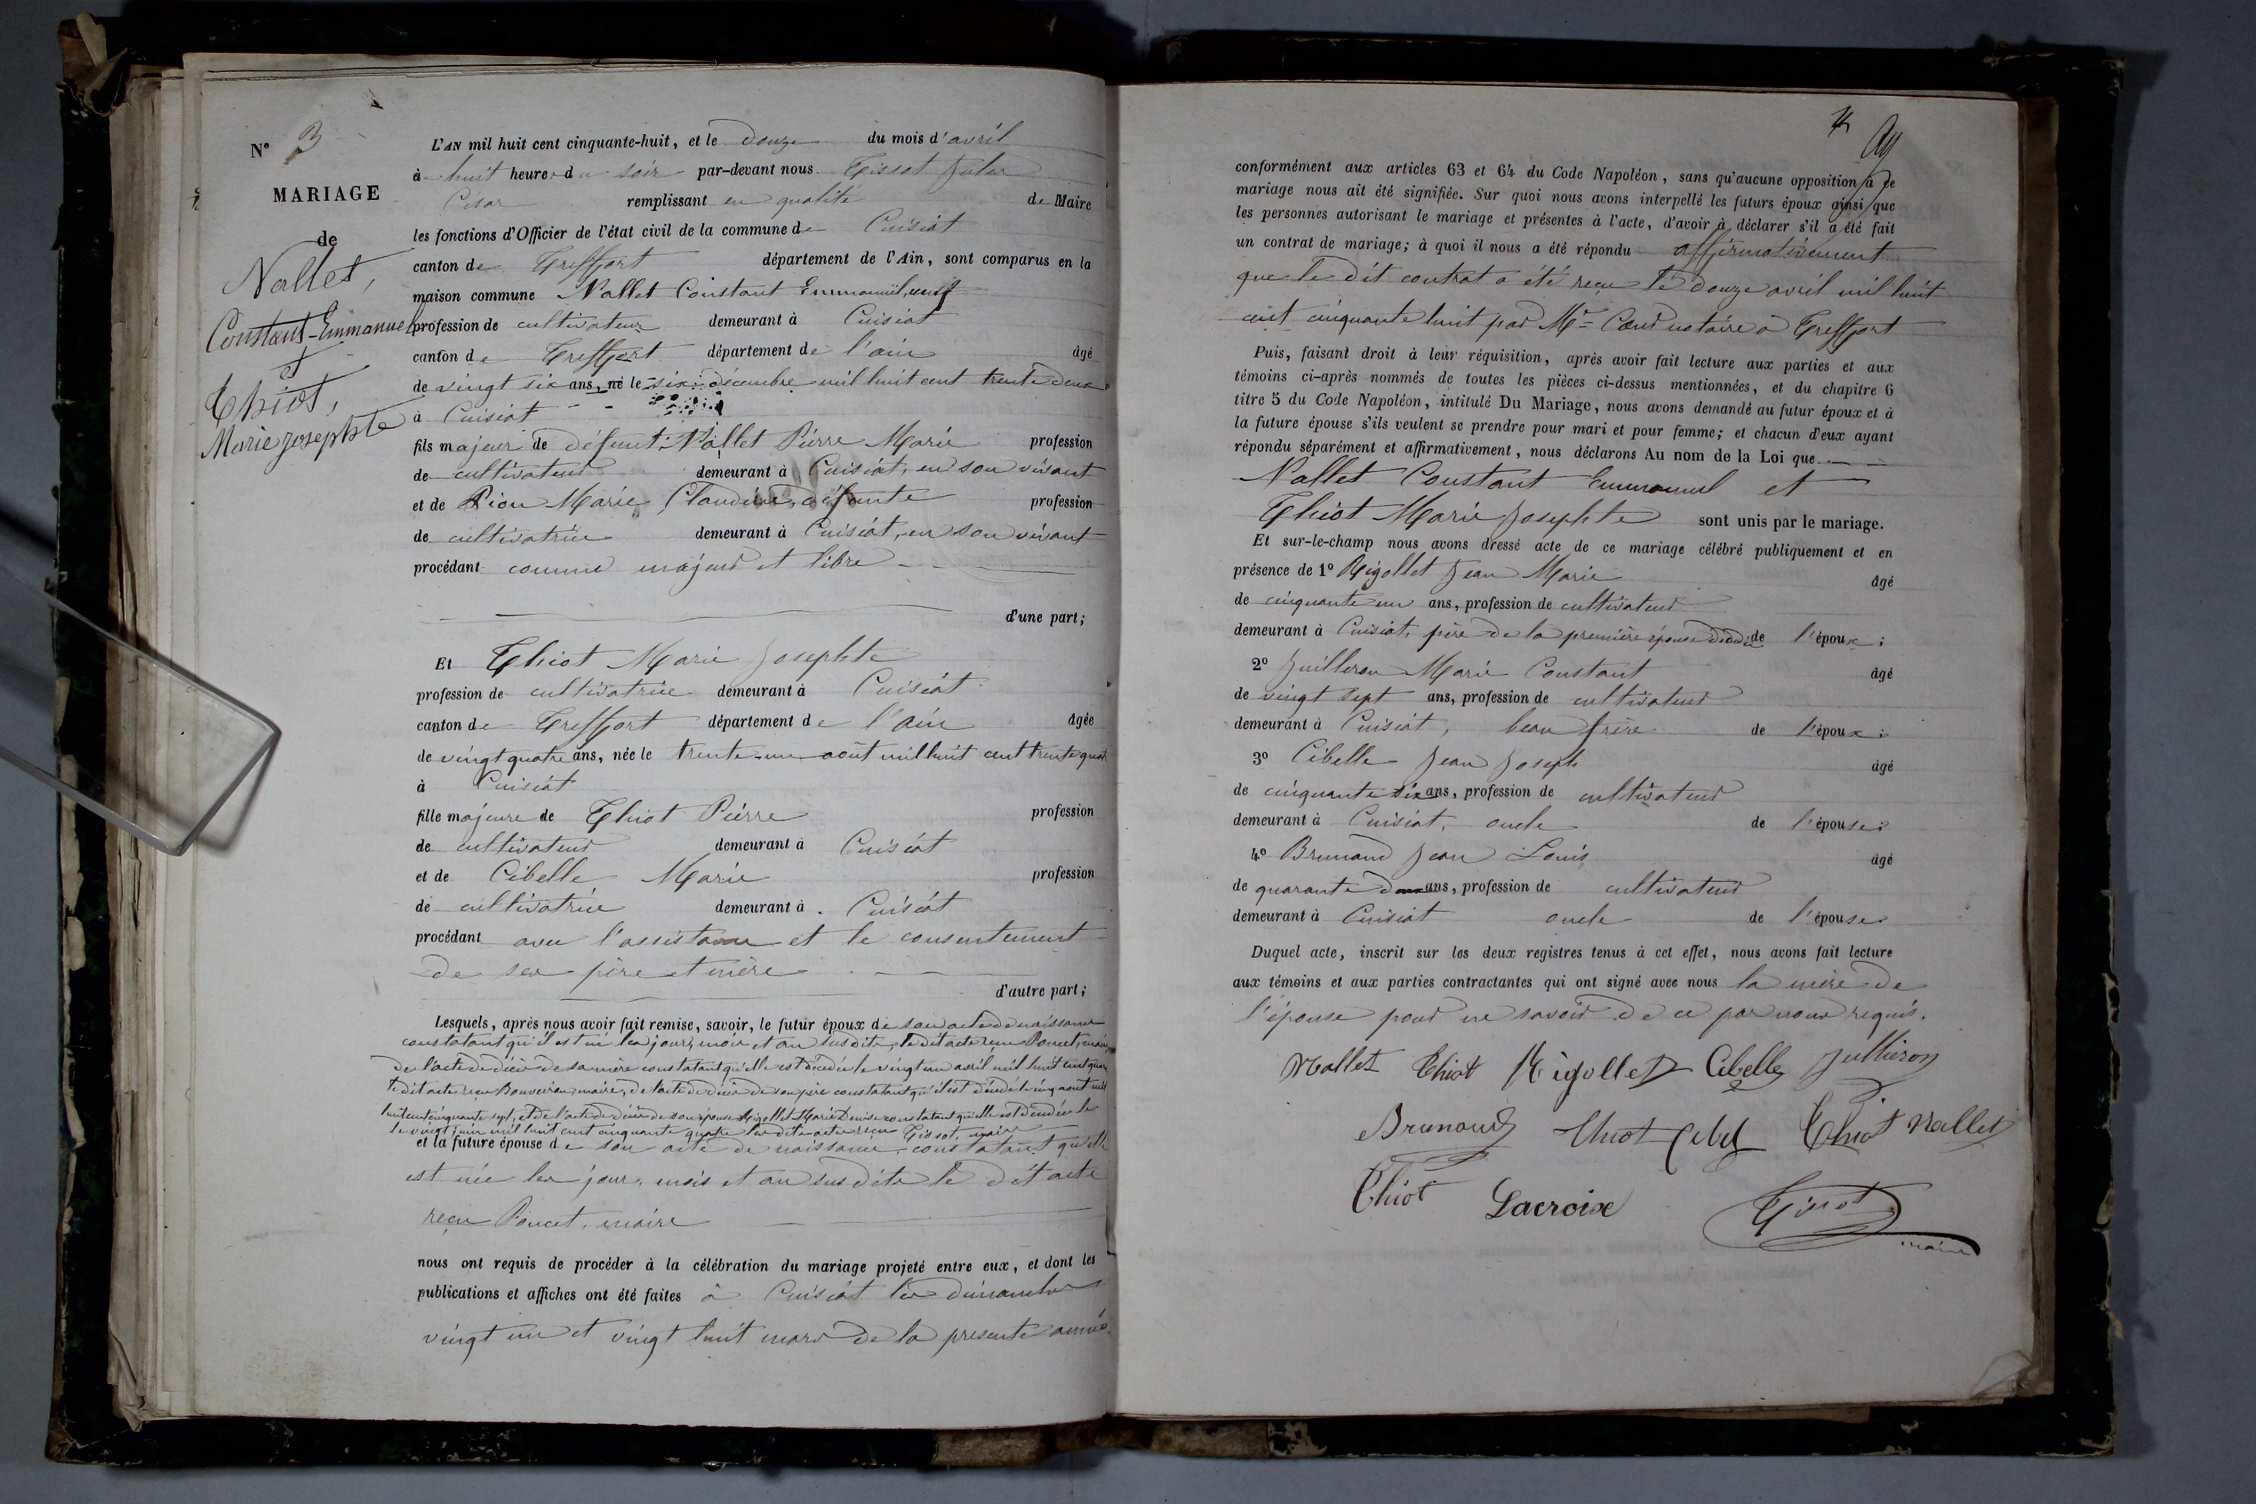 N° 3
MARIAGE
de
Nallet,
Constant-Emmanuel
et
Thiot,
Marie Josephte
L'AN mil huit cent cinquante-huit, et le douze du mois d'avril
à huit heures du soir par-devant nous Tissot Jules
Cesar remplissant en qualité de Maire
les fonctions d'Officier de l'état civil de la commune de Cuisiat
canton de Treffort département de l'Ain, sont comparus en la
maison commune Nallet Constant Emmanuel, veuf
profession de cultivateur demeurant à Cuisiat
canton de Treffort département de l'ain âgé
de vingt six ans, né le six décembre mil huit cent trente deux
à Cuisiat
fils majeur de défunt Nallet Pierre Marie profession
de cultivateur demeurant à Cuisiat, en son vivant
et de Pion Marie Claudine, défunte profession
de cultivatrice demeurant à Cuisiat, en son vivant
procédant comme majeur et libre
d'une part;
Et Thiot Marie Josephte
profession de cultivatrice demeurant à Cuisiat
canton de Treffort département de l'ain âgée
de vingt quatre ans, née le trente un août mil huit cent trente quat
à Cuisiat
fille majeure de Thiot Pierre profession
de cultivateur demeurant à Cuisiat
et de Cibelle Marie profession
de cultivatrice demeurant à Cuisiat
procédant avec l'assistance et le consentement
de ses père et mère
d'autre part;
Lesquels, après nous avoir fait remise, savoir, le futur époux de son acte de naissance
constatant qu'il est né les jour, mois et an susdits, le dit acte reçu Poncet, maire
de l'acte de décès de sa mère constatant qu'elle est décédée le vingt un avril mil huit cent quar
le dit acte reçu Bouveyron, maire, de l'acte de décès de son père constatant qu'il est décédé le cinq août mil
huit cent cinquante sept, et de l'acte de décès de son épouse Rigollet Marie Denise constatant qu'elle est décédée le
le vingt juin mil huit cent cinquante quatre les dits actes reçu Tissot, maire
et la future épouse de son acte de naissance, constatant qu'elle
est née les jour, mois et an susdits le dit acte
reçu Poncet, maire
nous ont requis de procéder à la célébration du mariage projeté entre eux, et dont les
publications et affiches ont été faites à Cuisiat les dimanches
vingt un et vingt huit mars de la presente année.
conformément aux articles 63 et 64 du Code Napoléon, sans qu'aucune opposition à ce
mariage nous ait été signifiée. Sur quoi nous avons interpellé les futurs époux ainsi que
les personnes autorisant le mariage et présentes à l'acte, d'avoir à déclarer s'il a été fait
un contrat de mariage; à quoi il nous a été répondu affirmativement
que le dit contrat a été reçu le douze avril mil huit
cent cinquante huit par Mr notaire à Treffort
Puis, faisant droit à leur réquisition, après avoir fait lecture aux parties et aux
témoins ci-après nommés de toutes les pièces ci-dessus mentionnées, et du chapitre 6
titre 5 du Code Napoléon, intitulé Du Mariage, nous avons demandé au futur époux et à
la future épouse s'ils veulent se prendre pour mari et pour femme; et chacun d'eux ayant
répondu séparément et affirmativement, nous déclarons Au nom de la Loi que
Nallet Constant Emmanuel et
Thiot Marie Josephte sont unis par le mariage.
Et sur-le-champ nous avons dressé acte de ce mariage célébré publiquement et en
présence de 1° Rigollet Jean Marie âgé
de cinquante un ans, profession de cultivateur
demeurant à Cuisiat, père de la première épouse de l'époux;
2° Juilleron Marie Constant âgé
de vingt sept ans, profession de cultivateur
demeurant à Cuisiat, beau frère de l'époux;
3° Cibelle Jean Joseph âgé
de cinquante six ans, profession de cultivateur
demeurant à Cuisiat, oncle de l'épouse;
4° Brunaud Jean Louis âgé
de quarante deux ans, profession de cultivateur
demeurant à Cuisiat oncle de l'épouse
Duquel acte, inscrit sur les deux registres tenus à cet effet, nous avons fait lecture
aux témoins et aux parties contractantes qui ont signé avec nous la mère de
l'épouse pour ne savoir de ce par nous requis.
Nallet Thiot Rigollet Cibelle Juilleron
Brunaud Thiot Thiot Nallet
Thiot Lacroix Tissot
maire